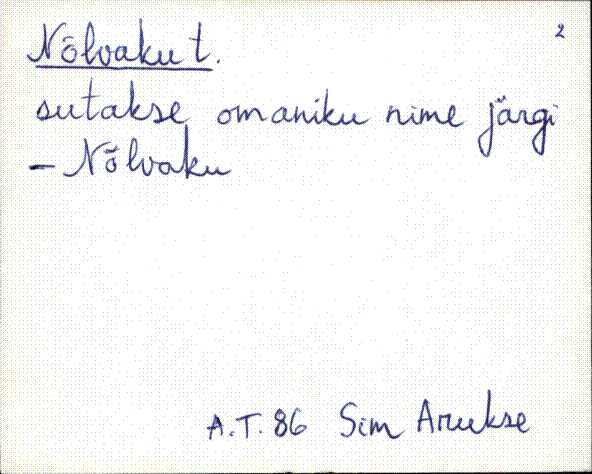 2
Nõlvaku t.
sutakse omaniku nime järgi
- Nõlvaku
A.T. 86 Sim Arukse